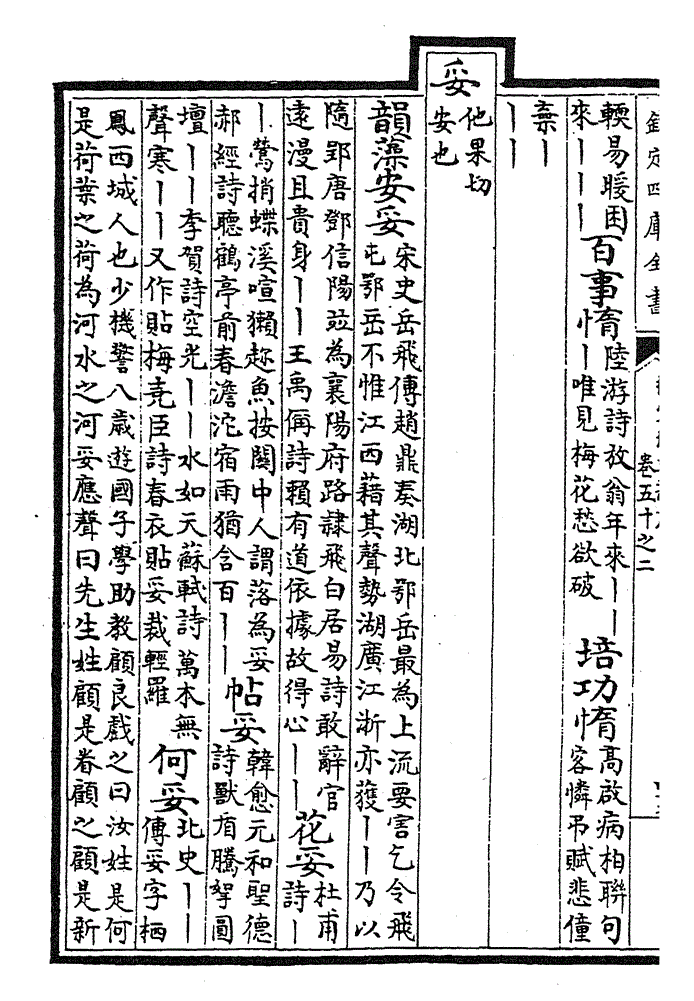 欽定四庫全書
卷五十之二
輭易暖困
來丨丨丨
百事惰
陸游詩放翁年來丨丨
丨唯見梅花愁欲破
培功惰
高啟病相聯句
客憐弔賦悲僮
棄丨
丨丨
妥
他果切
安也
韻藻安妥
宋史岳飛傳趙鼎奏湖北鄂岳最為上流要害乞令飛
屯鄂岳不惟江西藉其聲勢湖廣江浙亦獲丨丨乃以
隨郢唐鄧信陽竝為襄陽府路隸飛白居易詩敢辭官
遠漫且貴身丨丨王禹偁詩賴有道依據故得心丨丨
花妥
杜甫
詩丨
丨鶯捎蝶溪喧獺趂魚按關中人謂落為妥
郝經詩聽鶴亭前春澹沱宿雨猶含百丨丨
帖妥
韓愈元和聖德
詩獸盾騰拏圓
壇丨丨李賀詩空光丨丨水如天蘇軾詩萬本無
聲寒丨丨又作貼梅堯臣詩春衣貼妥裁輕羅
何妥
北史丨丨
傳妥字栖
鳳西城人也少機警八歲遊國子學助教顧良戲之曰汝姓是何
是荷葉之荷為河水之河妥應聲曰先生姓顧是眷顧之顧是新